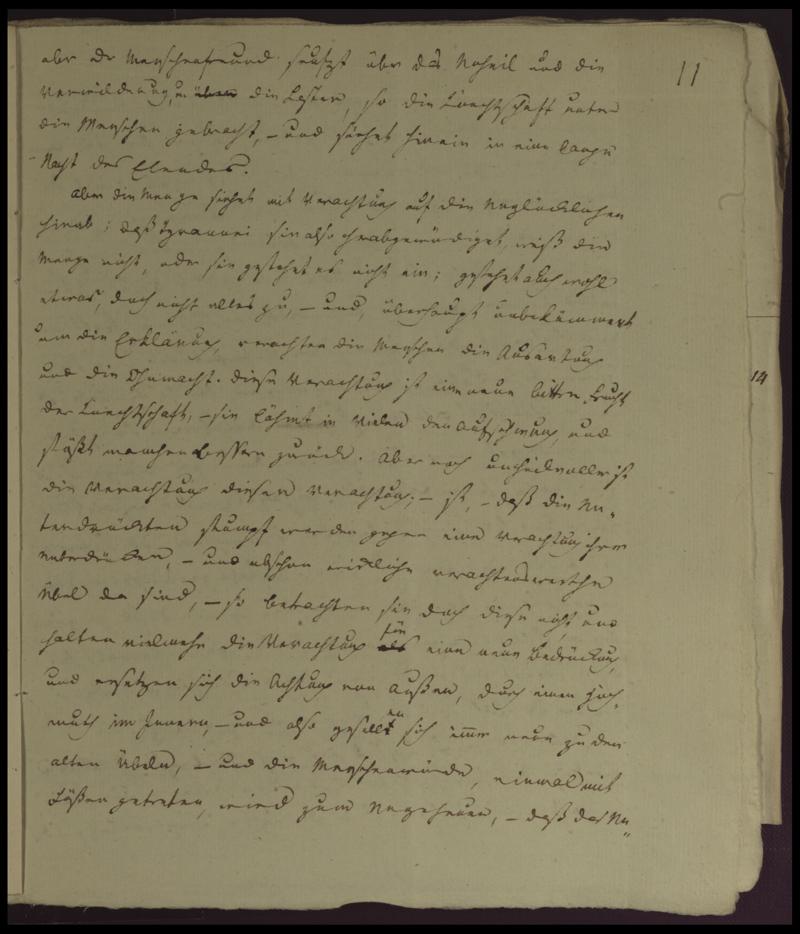 11
aber der Menschenfreund seufzt über das Unheil und die
Verwilderung, u über die Laster, so die Knechtschaft unter
die Menschen gebracht, – und siehet hinein in eine lange
Nacht des Elendes.
Aber die Menge siehet mit Verachtung auf die Unglücklichen
hinab; daß Tyrannei sie also herabgewürdiget, weiß die
Menge nicht, oder sie gestehet es nicht ein; gestehet auch wohl
etwas, doch nicht alles zu, – und, überhaupt unbekümmert
um die Erklärung, verachten die Menschen die Ausartung
und die Ohnmacht. Diese Verachtung ist eine neue bittere Frucht
der Knechtschaft, – sie lähmt in Vielen den Aufschwung, und
stößt manchen Bessern zurück. Aber noch unheilvoller ist
die Verachtung dieser Verachtung; – ist, – daß die Un„
terdrückten stumpf werden gegen eine Verachtung ihrer
Unterdrücker, – und obschon wirkliche verachtenswerthe
Übel da sind, – so betrachten sie doch diese nicht, und
halten vielmehr die Verachtung als für eine neue Bedrückung,
und ersetzen sich die Achtung von Außen, durch einen Hoch„
muth im Innern, – und also gesellen sich immer neue zu den
alten Übeln, – und die Menschenwürde, einmal mit
Füßen getreten, wird zum Ungeheuer, – daß das Un„
14